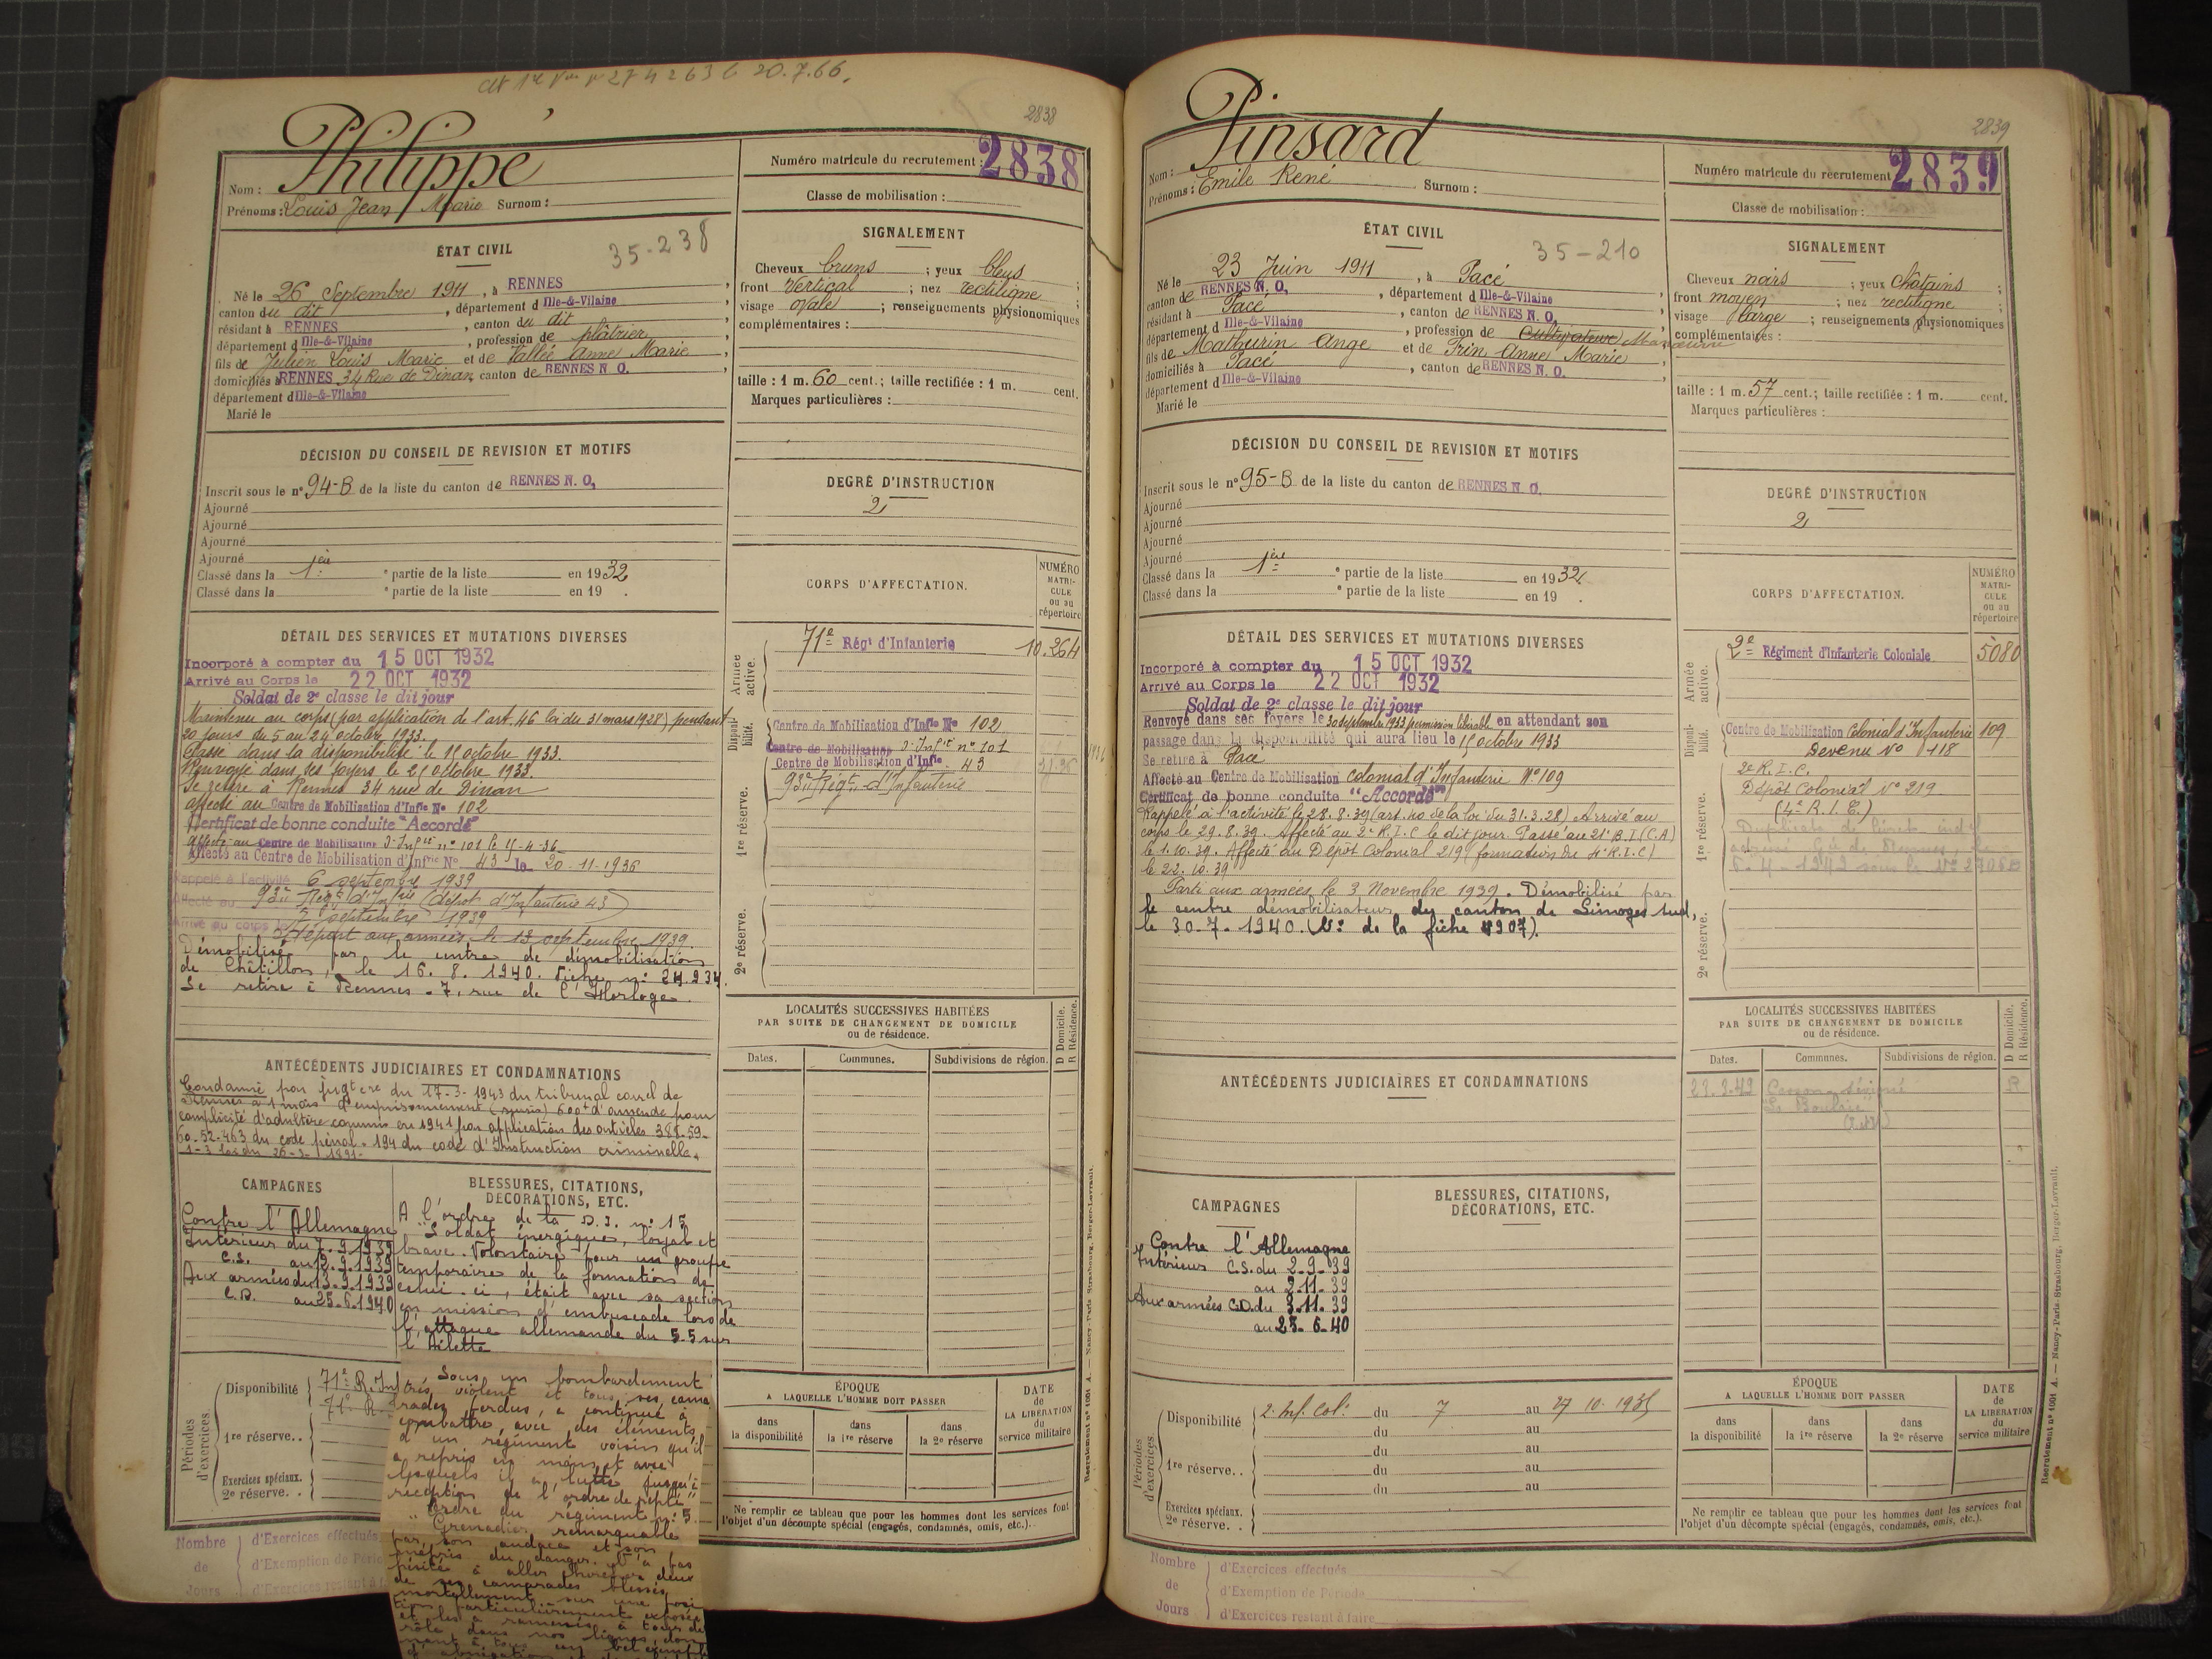 20.7.66.
2838
Philippe
Nom :
Prénoms : Louis Jean Marie Surnom :
Numéro matricule du recrutement : 2838
Classe de mobilisation :
ÉTAT CIVIL
35-238
Né le 26 Septembre 1911, à RENNES,
canton du dit, département d Ille-&-Vilaine,
résidant à RENNES, canton du dit,
département d Ille-&-Vilaine, profession de plâtrier,
fils de Julien Louis Marie et de Vallée Anne Marie,
domiciliés à RENNES 34 Rue de Dinan, canton de RENNES N O.,
département d Ille-&-Vilaine
Marié le
SIGNALEMENT
Cheveux bruns ; yeux bleus ;
front Vertical ; nez rectiligne ;
visage ovale ; renseignements physionomiques
complémentaires :
taille : 1 m. 60 cent. ; taille rectifiée : 1 m. cent.
Marques particulières :
DÉCISION DU CONSEIL DE REVISION ET MOTIFS
Inscrit sous le n° 94-B de la liste du canton de RENNES N. O.
Ajourné
Ajourné
Ajourné
Ajourné
Classé dans la 1ère ° partie de la liste en 1932
Classé dans la ° partie de la liste en 19 .
DEGRÉ D'INSTRUCTION
2
CORPS D'AFFECTATION.
NUMÉRO
MATRI-
CULE
ou au
répertoire
DÉTAIL DES SERVICES ET MUTATIONS DIVERSES
Incorporé à compter du 15 OCT 1932
Arrivé au Corps le 22 OCT 1932
Soldat de 2e classe le dit jour
Maintenu au corps (par application de l'art. 46 loi du 31 mars 1928) pendant
20 jours du 5 au 24 octobre 1933.
Classé dans la disponibilité le 15 octobre 1933.
Renvoyé dans ses foyers le 21 octobre 1933.
Se retire à Rennes 34 rue de Dinan
affecté au Centre de Mobilisation d'Infie No 102
Certificat de bonne conduite "Accordé"
affecté au Centre de Mobilisation d'Infie n° 101 le 15-4-36
Affecté au Centre de Mobilisation d'Infrie No. 43 le 20-11-1936
Rappelé à l'activité 6 septembre 1939
Affecté au 93e Régt d'Infrie (dépôt d'Infanterie 43)
Arrivé au corps le 7 septembre 1939
Départ aux armées le 13 septembre 1939.
Démobilisé par le centre de démobilisation
de Châtillon, le 16. 8. 1940. Fiche n° 24.934
Se retire à Rennes - 7, rue de l'Horloge.
Armée active.
71e Régt d'Infanterie 10.264
Disponi-bilité.
Centre de Mobilisation d'Infie No 102
Centre de Mobilisation d'Infie n° 101
Centre de Mobilisation d'Infie 43
1re réserve.
93e Régt d'Infanterie
2e réserve.
LOCALITÉS SUCCESSIVES HABITÉES
PAR SUITE DE CHANGEMENT DE DOMICILE
ou de résidence.
Dates. Communes. Subdivisions de région. D Domicile. R Résidence.
ANTÉCÉDENTS JUDICIAIRES ET CONDAMNATIONS
Condamné par jugt du 17-3-1943 du tribunal correl de
Rennes à 1 mois d'emprisonnement (sursis) 600f d'amende pour
complicité d'adultère commis en 1941 par application des articles 338.59-
60-52-463 du code pénal - 194 du code d'Instruction criminelle.
1-3 loi du 26-3-1891-
CAMPAGNES
Contre l'Allemagne
Intérieur du 7.9.1939
C.S. au 12.9.1939
Aux armées du 13.9.1939
C.D. au 25.6.1940
BLESSURES, CITATIONS,
DÉCORATIONS, ETC.
A l'ordre de la D.I. n° 15
"Soldat énergique, loyal et
brave. Volontaire pour un groupe
temporaire de la formation de
celui-ci, était avec sa section
en mission d'embuscade lors de
l'attaque allemande du 5.5 sur
l'Ailette
Sous un bombardement
très violent et tous ses cama
rades perdus, a continué à
combattre avec des éléments
d'un régiment voisin qu'il
a repris en main et avec
lesquels il a lutté jusqu'à
réception de l'ordre de repli"
Ordre du régiment n° 5.
"Grenadier remarquable
par son audace et son
mépris du danger. N'a pas
hésité à aller chercher deux
de ses camarades blessés
mortellement sur une posi
tion particulièrement exposée
et les a ramenés à tour de
rôle dans nos lignes, don
nant à tous un bel exemple
d'abnégation
Périodes d'exercices.
Disponibilité 71e R. Inf
71e R.
1re réserve. .
Exercices spéciaux.
2e réserve. .
ÉPOQUE
A LAQUELLE L'HOMME DOIT PASSER
dans la disponibilité dans la 1re réserve dans la 2e réserve
DATE de LA LIBÉRATION du service militaire
Ne remplir ce tableau que pour les hommes dont les services font
l'objet d'un décompte spécial (engagés, condamnés, omis, etc.).
Nombre de Jours
d'Exercices effectués
d'Exemption de Pério
d'Exercices restant à f
Recrutement n° 1001 A. — Nancy-Paris-Strasbourg, Berger-Levrault.
2839
Pinsard
Nom :
Prénoms : Emile René Surnom :
Numéro matricule du recrutement 2839
Classe de mobilisation :
ÉTAT CIVIL
35-210
Né le 23 Juin 1911, à Pacé
canton de RENNES N. O., département d Ille-&-Vilaine,
résidant à Pacé, canton de RENNES N. O.,
département d Ille-&-Vilaine, profession de Cultivateur Manœuvre
fils de Mathurin Ange et de Frin Anne Marie,
domiciliés à Pacé, canton de RENNES N. O.,
département d Ille-&-Vilaine
Marié le
SIGNALEMENT
Cheveux noirs ; yeux châtains ;
front moyen ; nez rectiligne ;
visage large ; renseignements physionomiques
complémentaires :
taille : 1 m. 57 cent. ; taille rectifiée : 1 m. cent.
Marques particulières :
DÉCISION DU CONSEIL DE REVISION ET MOTIFS
Inscrit sous le n° 95-B de la liste du canton de RENNES N. O.
Ajourné
Ajourné
Ajourné
Ajourné
Classé dans la 1ère ° partie de la liste en 1932
Classé dans la ° partie de la liste en 19 .
DEGRÉ D'INSTRUCTION
2
CORPS D'AFFECTATION.
NUMÉRO
MATRI-
CULE
ou au
répertoire
DÉTAIL DES SERVICES ET MUTATIONS DIVERSES
Incorporé à compter du 15 OCT 1932
Arrivé au Corps le 22 OCT 1932
Soldat de 2e classe le dit jour
Renvoyé dans ses foyers le 30 septembre 1933 permission libérable en attendant son
passage dans la disponibilité qui aura lieu le 15 octobre 1933
Se retire à Pacé
Affecté au Centre de Mobilisation colonial d'Infanterie No 109
Certificat de bonne conduite "Accordé"
Rappelé à l'activité le 28.8.39 (art. 40 de la loi du 31.3.28) Arrivé au
corps le 29.8.39. Affecté au 2e R.I.C le dit jour. Passé au 21e B.I (C.A)
le 1.10.39. Affecté au Dépôt Colonial 219 (formation du 4e R.I.C)
le 22.10.39
Parti aux armées le 3 Novembre 1939. Démobilisé par
le centre démobilisateur du canton de Limoges sud,
le 30.7.1940. (N° de la fiche 4907).
Armée active.
2e Régiment d'Infanterie Coloniale 5080
Disponi-bilité.
Centre de Mobilisation Colonial d'Infanterie 109
Devenu No 118
1re réserve.
2e R.I.C.
Dépôt Colonial No 219
(4e R.I.C.)
2e réserve.
LOCALITÉS SUCCESSIVES HABITÉES
PAR SUITE DE CHANGEMENT DE DOMICILE
ou de résidence.
Dates. Communes. Subdivisions de région. D Domicile. R Résidence.
Cesson-Sévigné R
ANTÉCÉDENTS JUDICIAIRES ET CONDAMNATIONS
CAMPAGNES
Contre l'Allemagne
Intérieur C.S. du 2.9.39
au 2.11.39
Aux armées C.D. du 3.11.39
au 25.6.40
BLESSURES, CITATIONS,
DÉCORATIONS, ETC.
Périodes d'exercices.
Disponibilité 2e Inf. Col. du 7 au 27 10. 1935
du au
du au
1re réserve. . du au
du au
Exercices spéciaux.
2e réserve. .
ÉPOQUE
A LAQUELLE L'HOMME DOIT PASSER
dans la disponibilité dans la 1re réserve dans la 2e réserve
DATE de LA LIBÉRATION du service militaire
Ne remplir ce tableau que pour les hommes dont les services font
l'objet d'un décompte spécial (engagés, condamnés, omis, etc.).
Nombre de Jours
d'Exercices effectués
d'Exemption de Période
d'Exercices restant à faire
Recrutement n° 1001 A. — Nancy-Paris-Strasbourg, Berger-Levrault.